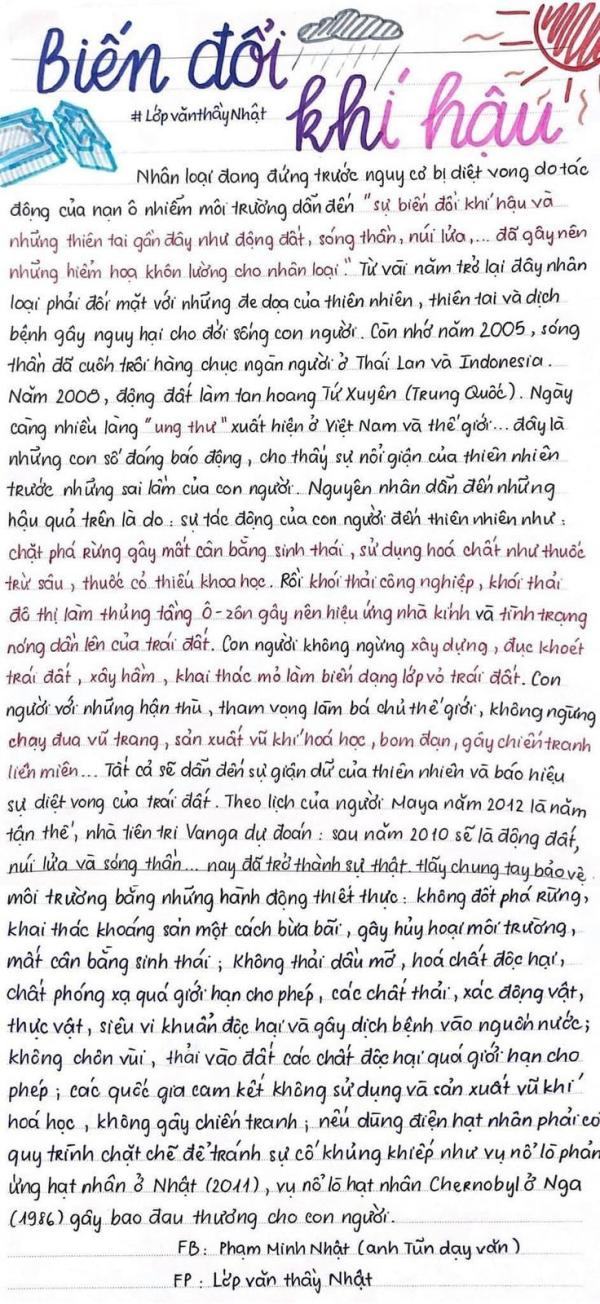 Biến đổi
khí hậu
#LớpvănthầyNhật
Nhân loại đang đứng trước nguy cơ bị diệt vong do tác
động của nạn ô nhiễm môi trường dẫn đến "sự biến đổi khí hậu và
những thiên tai gần đây như động đất, sóng thần, núi lửa,... đã gây nên
những hiểm hoạ khôn lường cho nhân loại." Từ vài năm trở lại đây nhân
loại phải đối mặt với những đe doạ của thiên nhiên, thiên tai và dịch
bệnh gây nguy hại cho đời sống con người. Còn nhớ năm 2005, sóng
thần đã cuốn trôi hàng chục ngàn người ở Thái Lan và Indonesia.
Năm 2008, động đất làm tan hoang Tứ Xuyên (Trung Quốc). Ngày
càng nhiều làng "ung thư" xuất hiện ở Việt Nam và thế giới... đây là
những con số đáng báo động, cho thấy sự nổi giận của thiên nhiên
trước những sai lầm của con người. Nguyên nhân dẫn đến những
hậu quả trên là do: sự tác động của con người đến thiên nhiên như:
chặt phá rừng gây mất cân bằng sinh thái, sử dụng hoá chất như thuốc
trừ sâu, thuốc cỏ thiếu khoa học. Rồi khói thải công nghiệp, khói thải
đô thị làm thủng tầng Ô-zôn gây nên hiệu ứng nhà kính và tình trạng
nóng dần lên của trái đất. Con người không ngừng xây dựng, đục khoét
trái đất, xây hầm, khai thác mỏ làm biến dạng lớp vỏ trái đất. Con
người với những hận thù, tham vọng làm bá chủ thế giới, không ngừng
chạy đua vũ trang, sản xuất vũ khí hoá học, bom đạn, gây chiến tranh
liên miên... Tất cả sẽ dẫn đến sự giận dữ của thiên nhiên và báo hiệu
sự diệt vong của trái đất. Theo lịch của người Maya năm 2012 là năm
tận thế, nhà tiên tri Vanga dự đoán: sau năm 2010 sẽ là động đất,
núi lửa và sóng thần... nay đã trở thành sự thật. Hãy chung tay bảo vệ
môi trường bằng những hành động thiết thực: không đốt phá rừng,
khai thác khoáng sản một cách bừa bãi, gây hủy hoại môi trường,
mất cân bằng sinh thái; Không thải dầu mỡ, hoá chất độc hại,
chất phóng xạ quá giới hạn cho phép, các chất thải, xác động vật,
thực vật, siêu vi khuẩn độc hại và gây dịch bệnh vào nguồn nước;
không chôn vùi, thải vào đất các chất độc hại quá giới hạn cho
phép; các quốc gia cam kết không sử dụng và sản xuất vũ khí
hoá học, không gây chiến tranh; nếu dùng điện hạt nhân phải có
quy trình chặt chẽ để tránh sự cố khủng khiếp như vụ nổ lò phản
ứng hạt nhân ở Nhật (2011), vụ nổ lò hạt nhân Chernobyl ở Nga
(1986) gây bao đau thương cho con người.
FB: Phạm Minh Nhật (anh Tũn dạy văn)
FP: Lớp văn thầy Nhật